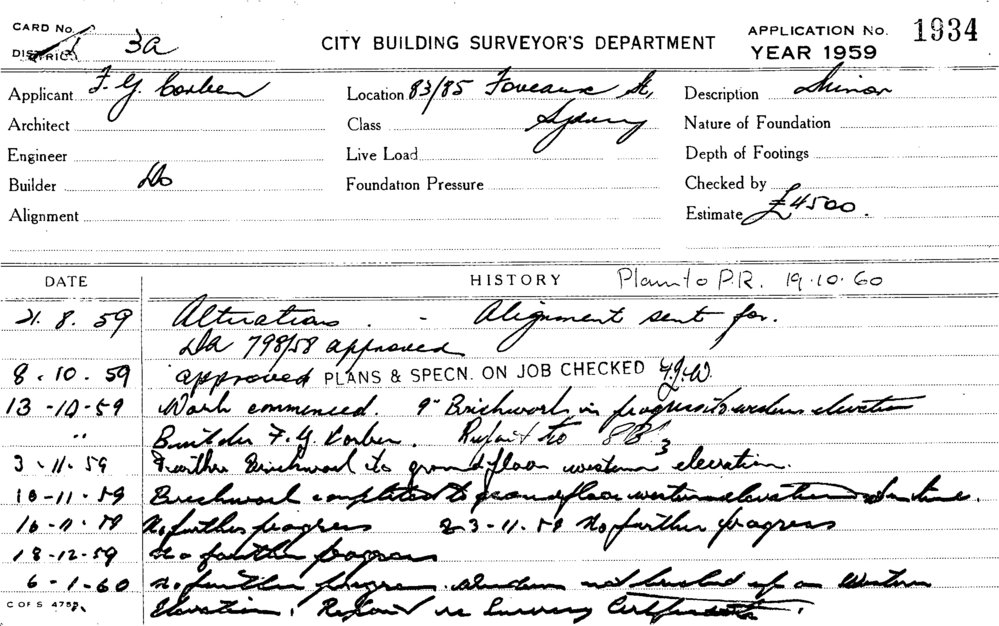 CARD No.
DISTRICT 3a
CITY BUILDING SURVEYOR'S DEPARTMENT
APPLICATION No. 1934
YEAR 1959
Applicant F. G. Corben
Location 83/85 Foveaux St,
Description Minor
Architect
Class Sydney
Nature of Foundation
Engineer
Live Load
Depth of Footings
Builder Do
Foundation Pressure
Checked by
Alignment
Estimate £4500.
DATE
HISTORY Plan to P.R. 19.10.60
21. 8. 59 Alterations. - Alignment sent for.
DA 798/58 approved
8. 10. 59 approved PLANS & SPECN. ON JOB CHECKED
13-10-59 Work commenced. 9" Brickwork in progress to western elevation
" Builder F. G. Korben. Report to
3-11-59 Further Brickwork to ground floor western elevation.
10-11-59 Brickwork completed to ground floor western elevation
16-11-59 No further progress 23-11-59 No further progress
18-12-59 No further progress
6-1-60 No further progress. Windows not bricked up on Western
C OF S 4758
Elevation. Report re Survey Certificate.